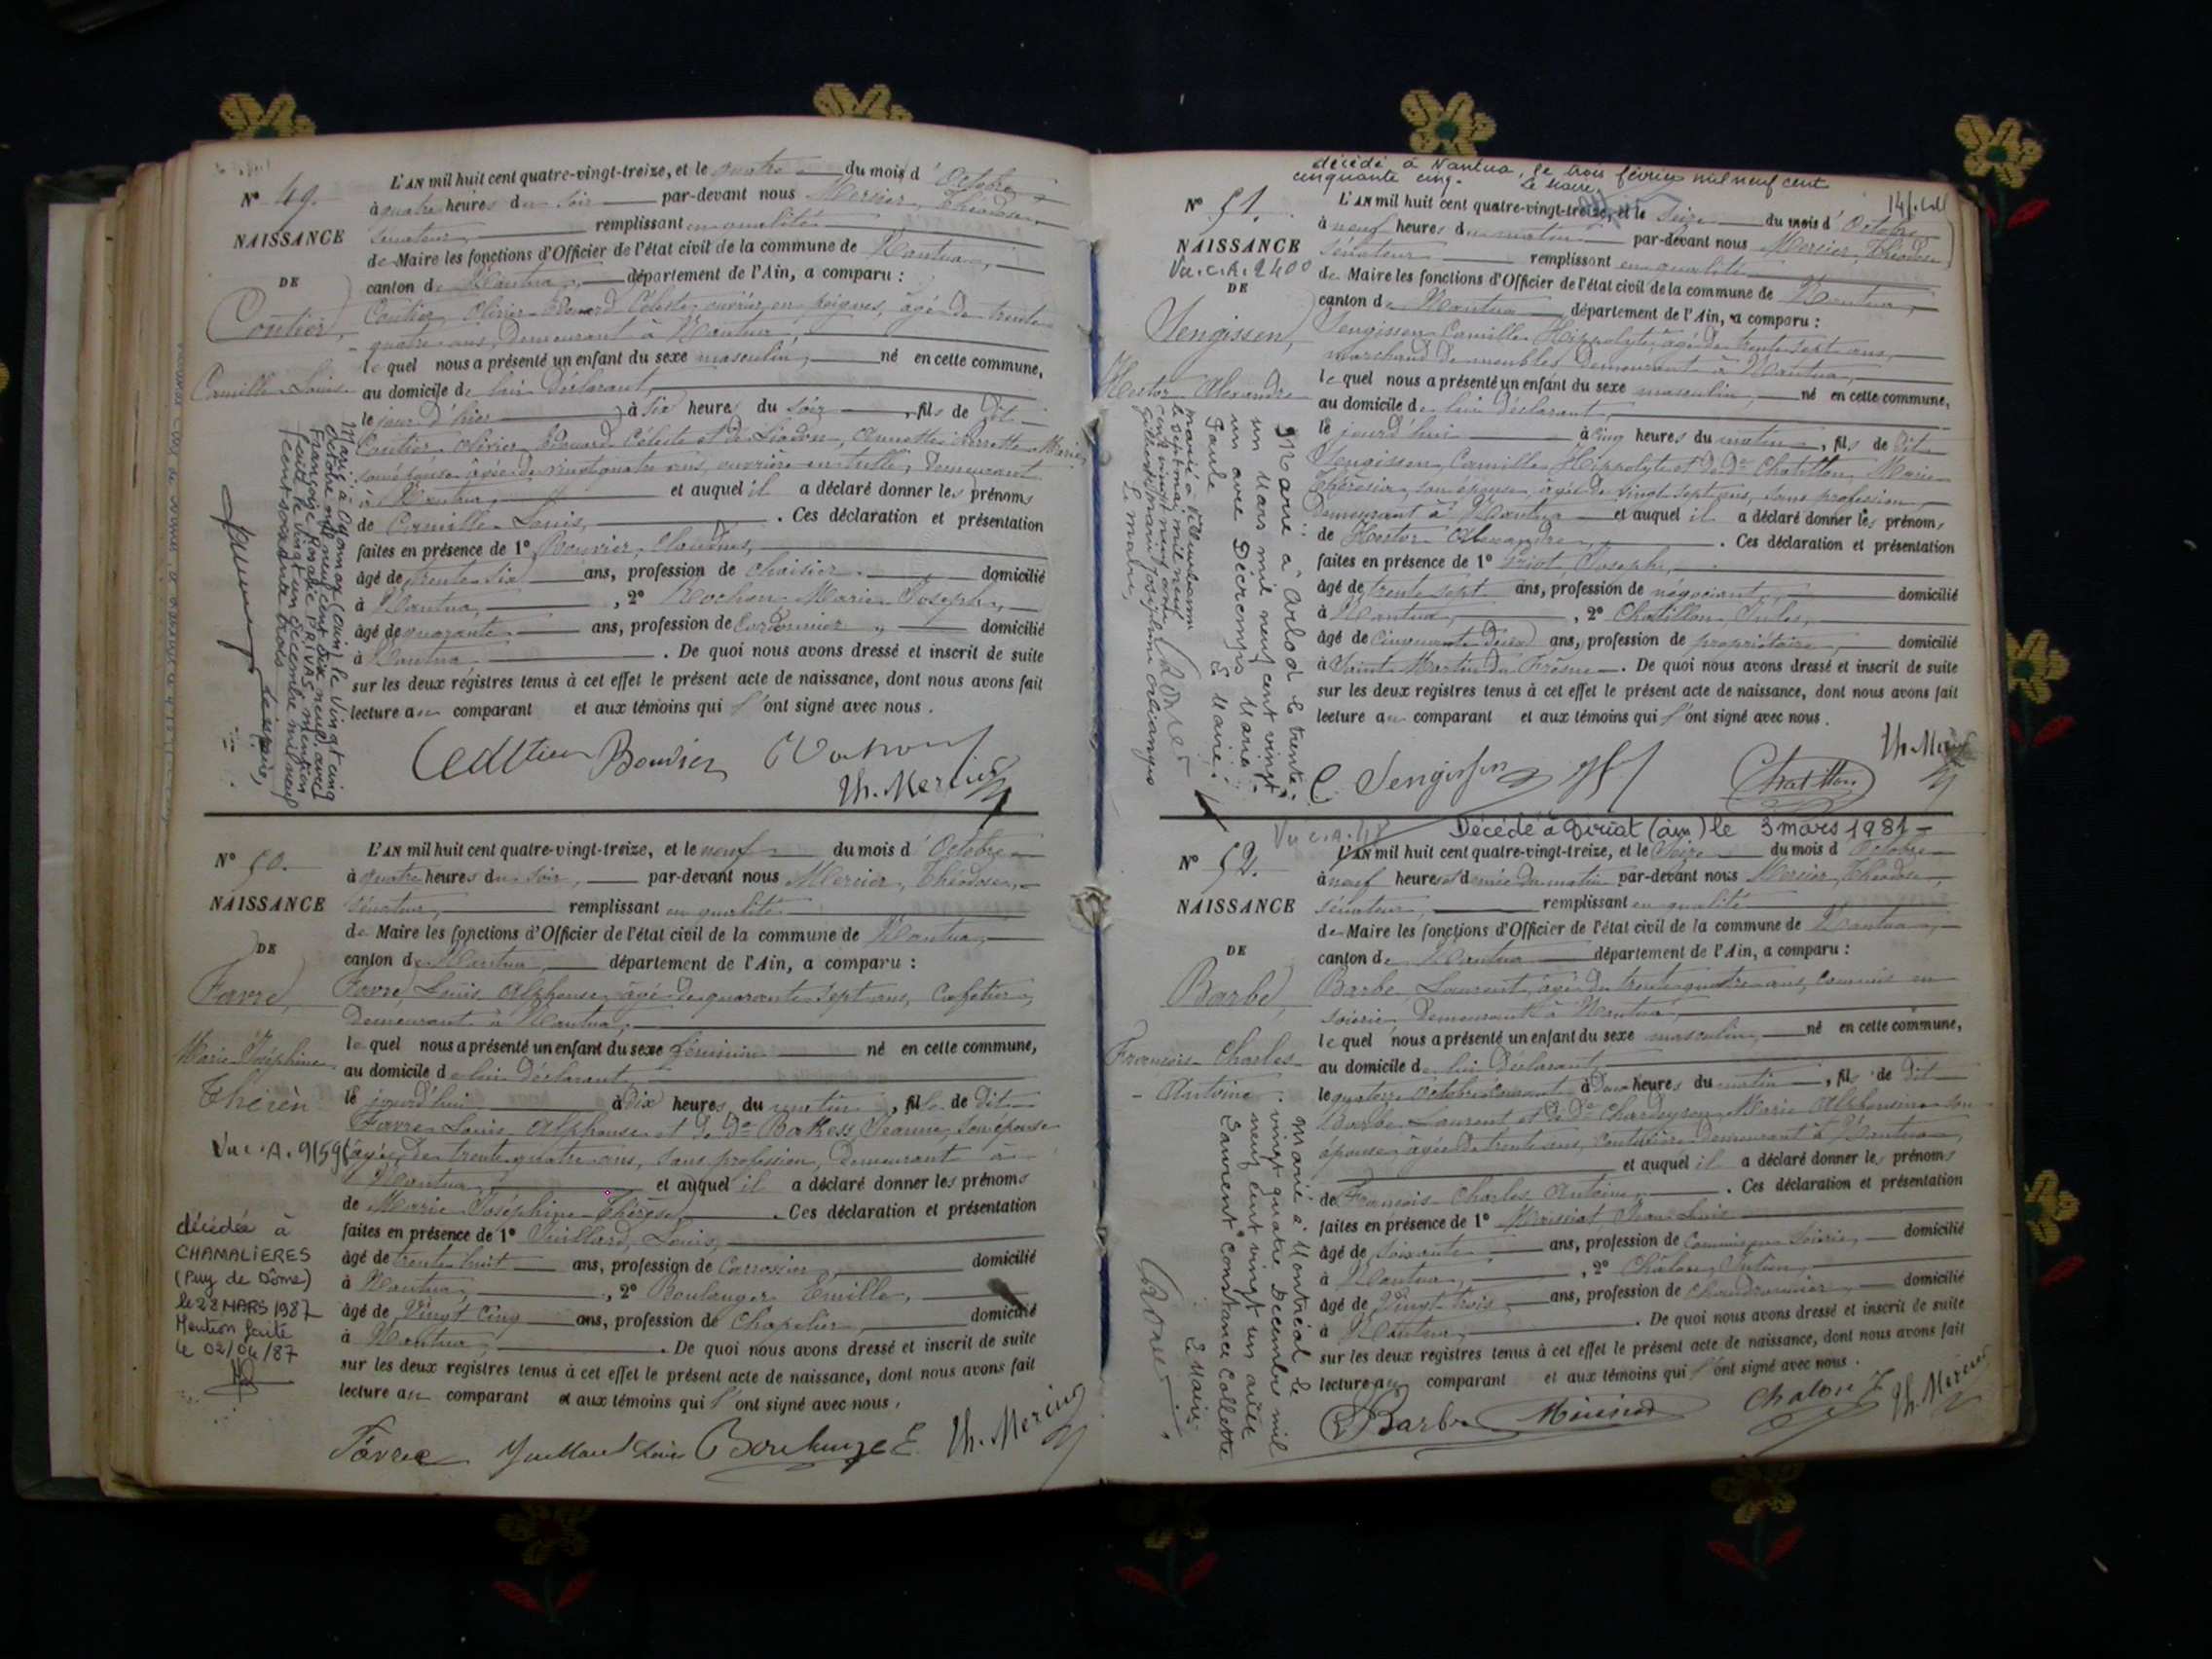 N° 49.
NAISSANCE
DE
Coutier,
Camille Louis
L'AN mil huit cent quatre-vingt-treize, et le quatre du mois d'Octobre
à quatre heures du soir par-devant nous Mercier, Théodose,
sénateur, remplissant en qualité
de Maire les fonctions d'Officier de l'état civil de la commune de Nantua,
canton de Nantua, département de l'Ain, a comparu :
Coutier Olivier Edouard Céleste, ouvrier en peignes, âgé de trente
quatre ans, demeurant à Nantua,
lequel nous a présenté un enfant du sexe masculin, né en cette commune,
au domicile de lui déclarant,
le jour d'hier à six heures du soir, fils de dit
Coutier Olivier Edouard Céleste et de Annette Pierrette Marie,
son épouse, âgée de vingt quatre ans, ouvrière en tulle, demeurant
à Nantua, et auquel il a déclaré donner les prénoms
de Camille Louis, . Ces déclaration et présentation
faites en présence de 1° Bouvier, Claudius,
âgé de trente six ans, profession de chaisier domicilié
à Nantua, , 2° Rochon Marie Joseph,
âgé de quarante ans, profession de Cordonnier, domicilié
à Nantua . De quoi nous avons dressé et inscrit de suite
sur les deux registres tenus à cet effet le présent acte de naissance, dont nous avons fait
lecture au comparant et aux témoins qui l'ont signé avec nous.
Marié à Oyonnax (Ain) le vingt cinq
Octobre mil neuf cent dix neuf avec
Françoise Romanie PRIVAS mention
faite le vingt et un décembre mil neuf
cent soixante trois
Le Maire,
Bouvier
Th. Mercier
N° 50.
NAISSANCE
DE
Favre,
Marie Joséphine
Thérèse
Vu c.A.
décédée à
CHAMALIERES
(Puy de Dôme)
le 28 MARS 1987
Mention faite
le 02/04/87
L'AN mil huit cent quatre-vingt-treize, et le neuf du mois d'Octobre
à quatre heures du soir, par-devant nous Mercier, Théodose,
sénateur, remplissant en qualité
de Maire les fonctions d'Officier de l'état civil de la commune de Nantua,
canton de Nantua, département de l'Ain, a comparu :
Favre, Louis Alphonse, âgé de quarante sept ans, Cafetier,
demeurant à Nantua,
lequel nous a présenté un enfant du sexe féminin né en cette commune,
au domicile de lui déclarant,
le jourd'hui à dix heures du matin, fille de dit
Favre Louis Alphonse et de De Jeanne, son épouse
âgée de trente quatre ans, sans profession, demeurant à
Nantua, et auquel il a déclaré donner les prénoms
de Marie Joséphine Thérèse . Ces déclaration et présentation
faites en présence de 1° Louis,
âgé de trente huit ans, profession de Carrossier, domicilié
à Nantua, , 2° Boulanger Emille,
âgé de Vingt Cinq ans, profession de Chapelier, domicilié
à Nantua . De quoi nous avons dressé et inscrit de suite
sur les deux registres tenus à cet effet le présent acte de naissance, dont nous avons fait
lecture au comparant et aux témoins qui l'ont signé avec nous.
Favre Louis Boulanger E. Th. Mercier
décédé à Nantua, le trois février mil neuf cent
cinquante cinq. Le Maire,
N° 51.
NAISSANCE
Vu.c.A. 2400
DE
Jengissen,
Hector Alexandre
L'AN mil huit cent quatre-vingt-treize, et le seize du mois d'Octobre
à neuf heures du matin par-devant nous Mercier, Théodose
sénateur remplissant en qualité
de Maire les fonctions d'Officier de l'état civil de la commune de Nantua,
canton de Nantua, département de l'Ain, a comparu :
Jengissen Camille Hippolyte, âgé de trente sept ans,
marchand de meubles demeurant à Nantua,
lequel nous a présenté un enfant du sexe masculin, né en cette commune,
au domicile de lui déclarant,
le jourd'hui à cinq heures du matin, fils de dit
Jengissen Camille Hippolyte et de De Chatillon, Marie
son épouse, âgée de vingt sept ans, sans profession,
demeurant à Nantua et auquel il a déclaré donner les prénoms
de Hector Alexandre, . Ces déclaration et présentation
faites en présence de 1° Joseph,
âgé de trente sept ans, profession de négociant, domicilié
à Nantua, , 2° Chatillon, Jules,
âgé de Cinquante deux ans, profession de propriétaire, domicilié
à Saint Martin du Fresne. De quoi nous avons dressé et inscrit de suite
sur les deux registres tenus à cet effet le présent acte de naissance, dont nous avons fait
lecture au comparant et aux témoins qui l'ont signé avec nous.
Marié à Arlod le trente
un Mars mil neuf cent vingt
un avec Décremps Marie
Paule Le Maire
Marié à Villeurbanne
le sept mai mil neuf
cent vingt neuf avec
Le maire,
C. Jengissen
Chatillon
Th. Mercier
Décédé à Viriat (ain) le 3 mars 1981
N° 52.
NAISSANCE
DE
Barbe,
François Charles
Antoine
L'AN mil huit cent quatre-vingt-treize, et le seize du mois d Octobre
à neuf heures et demie du matin par-devant nous Mercier, Théodose,
sénateur, remplissant en qualité
de Maire les fonctions d'Officier de l'état civil de la commune de Nantua,
canton de Nantua département de l'Ain, a comparu :
Barbe, Laurent, âgé de trente quatre ans, Commis en
soierie, demeurant à Nantua,
lequel nous a présenté un enfant du sexe masculin, né en cette commune,
au domicile de lui déclarant,
le quatorze Octobre courant à deux heures du matin, fils de dit
Barbe Laurent et de De Marie Alphonsine son
épouse, âgée de trente ans, couturière demeurant à Nantua,
et auquel il a déclaré donner les prénoms
de François Charles Antoine, . Ces déclaration et présentation
faites en présence de 1° Moissiat Jean Louis
âgé de soixante ans, profession de Commis en Soierie, domicilié
à Nantua, , 2° Chalon, Julien,
âgé de Vingt trois ans, profession de domicilié
à Nantua, . De quoi nous avons dressé et inscrit de suite
sur les deux registres tenus à cet effet le présent acte de naissance, dont nous avons fait
lecture au comparant et aux témoins qui l'ont signé avec nous.
Marié à Montréal le
vingt quatre Décembre mil
neuf cent vingt un avec
Laurent Constance Collette
Le Maire
Barbe Chalon J Th. Mercier